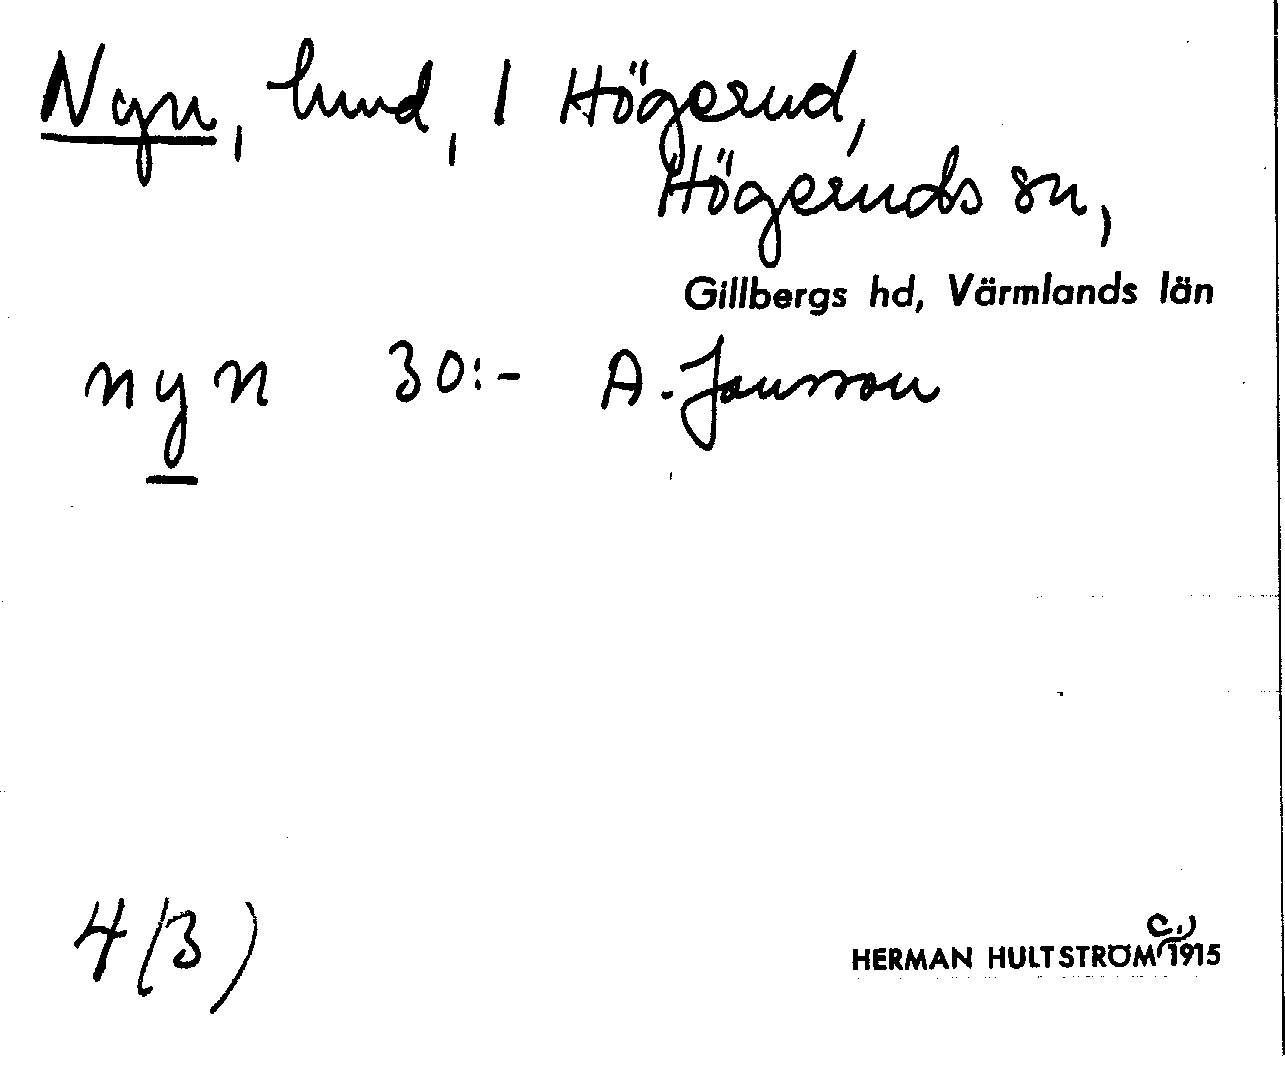 Nyn, lund, 1 Högerud,
Högeruds sn,
Gillbergs hd, Värmlands län
nyn 30:- A. Jansson
4 (3)
HERMAN HULTSTRÖM (c.) 1915